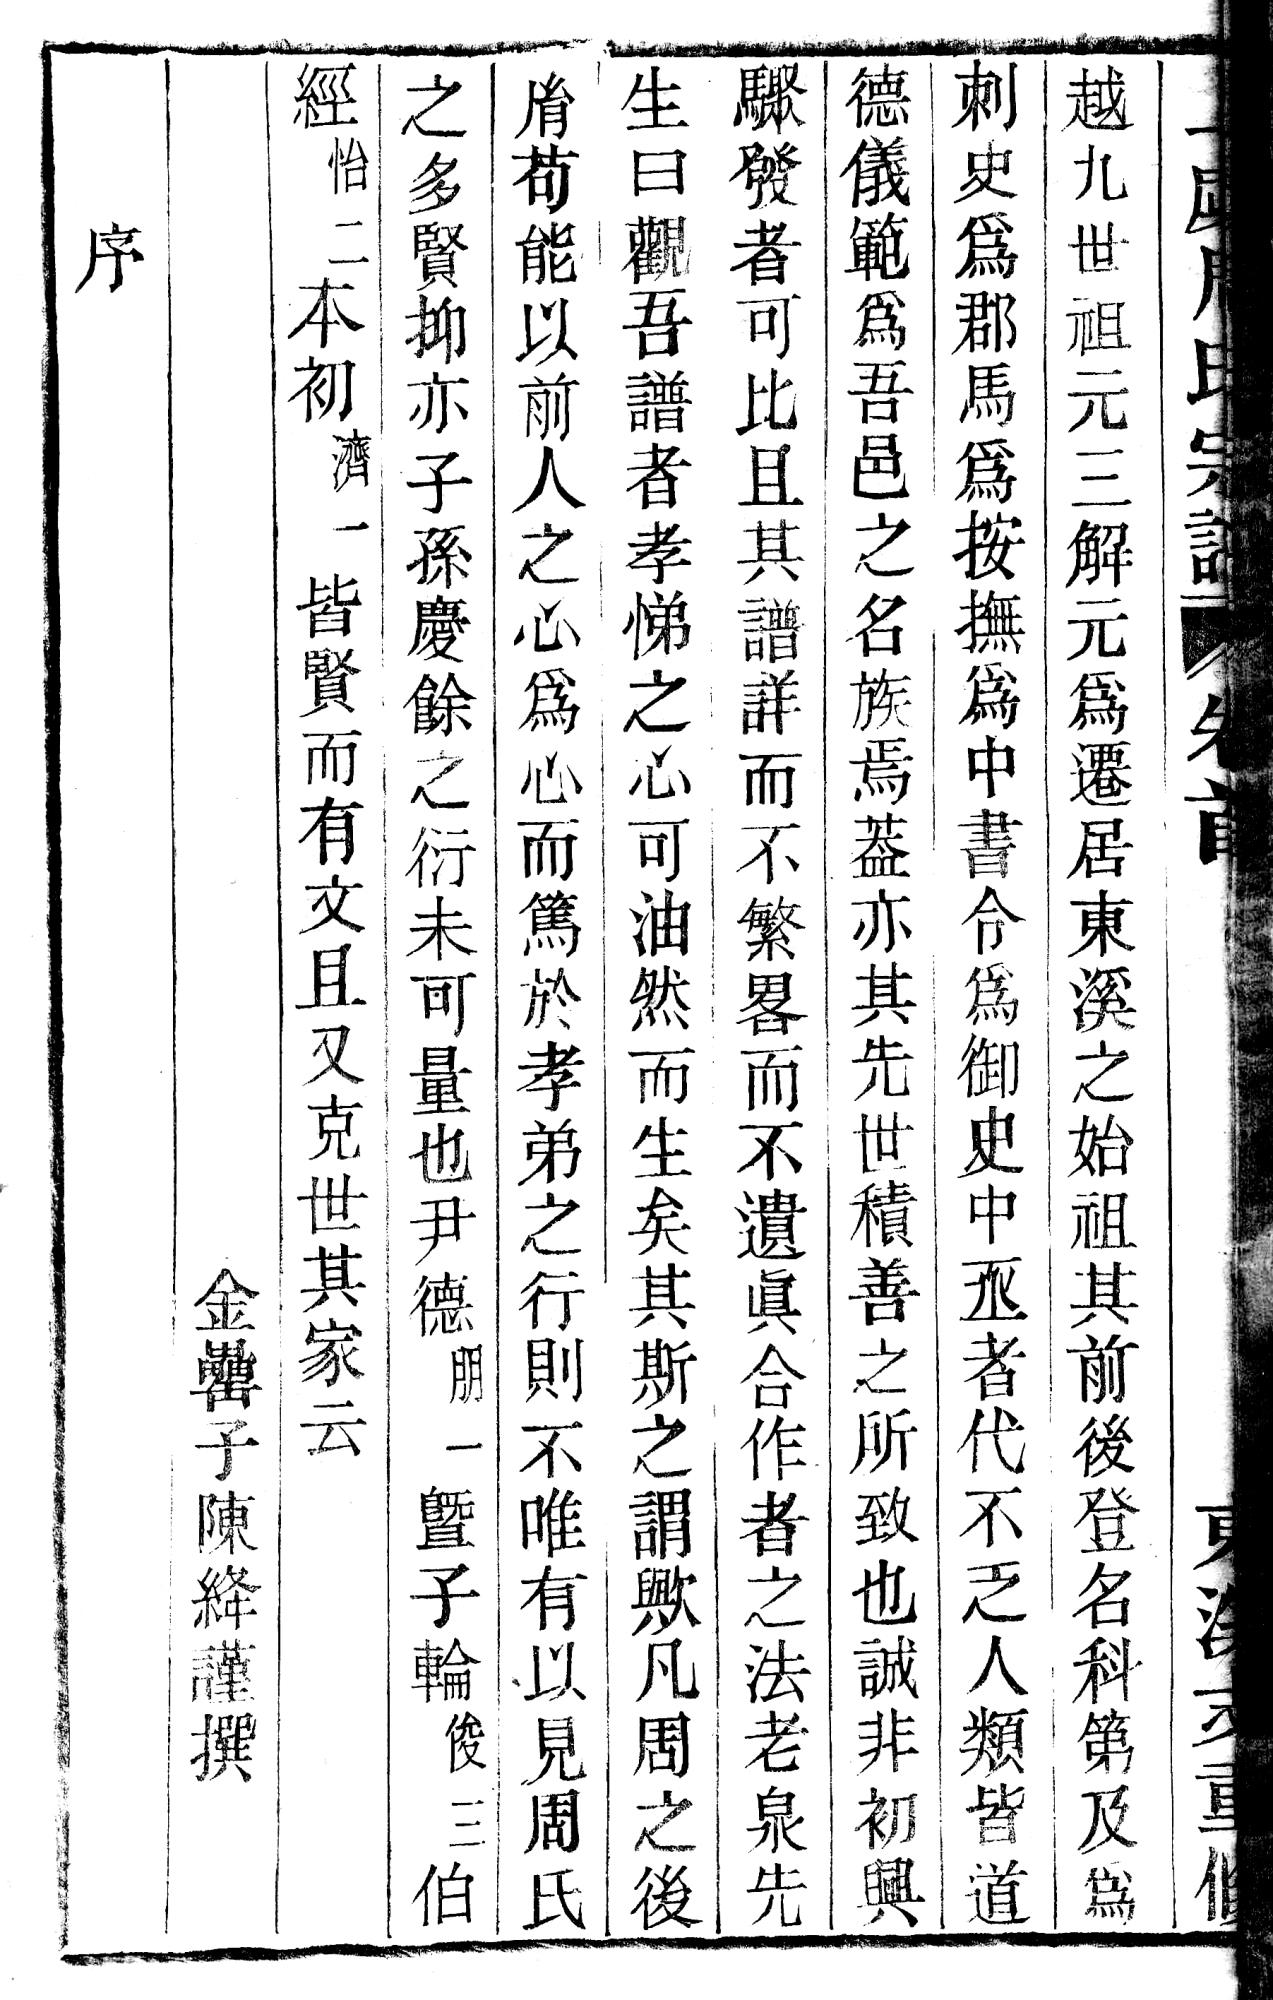 氏宗譜 卷首 東溪 重修
越九世祖元三解元爲遷居東溪之始祖其前後登名科第及爲
刺史爲郡馬爲按撫爲中書令爲御史中丞者代不乏人類皆道
德儀範爲吾邑之名族焉葢亦其先世積善之所致也誠非初興
驟發者可比且其譜詳而不繁畧而不遺眞合作者之法老泉先
生曰觀吾譜者孝悌之心可油然而生矣其斯之謂歟凡周之後
胤苟能以前人之心爲心而篤於孝弟之行則不唯有以見周氏
之多賢抑亦子孫慶餘之衍未可量也尹德朋一曁子輪俊三伯
經怡二本初濟一皆賢而有文且又克世其家云
金罍子陳絳謹撰
序